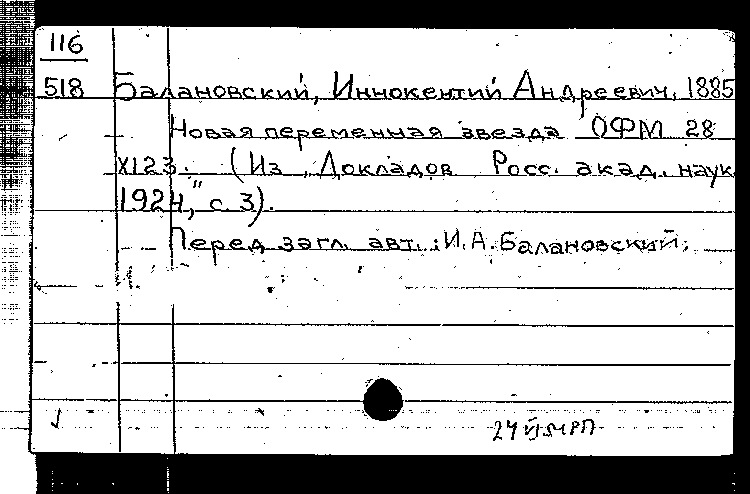 116
518 Балановский, Иннокентий Андреевич, 1885
Новая переменная звезда ОФМ 28
XI23. (Из „Докладов Росс. акад. наук
1924," с. 3).
Перед загл. авт.: И.А. Балановский;
И.